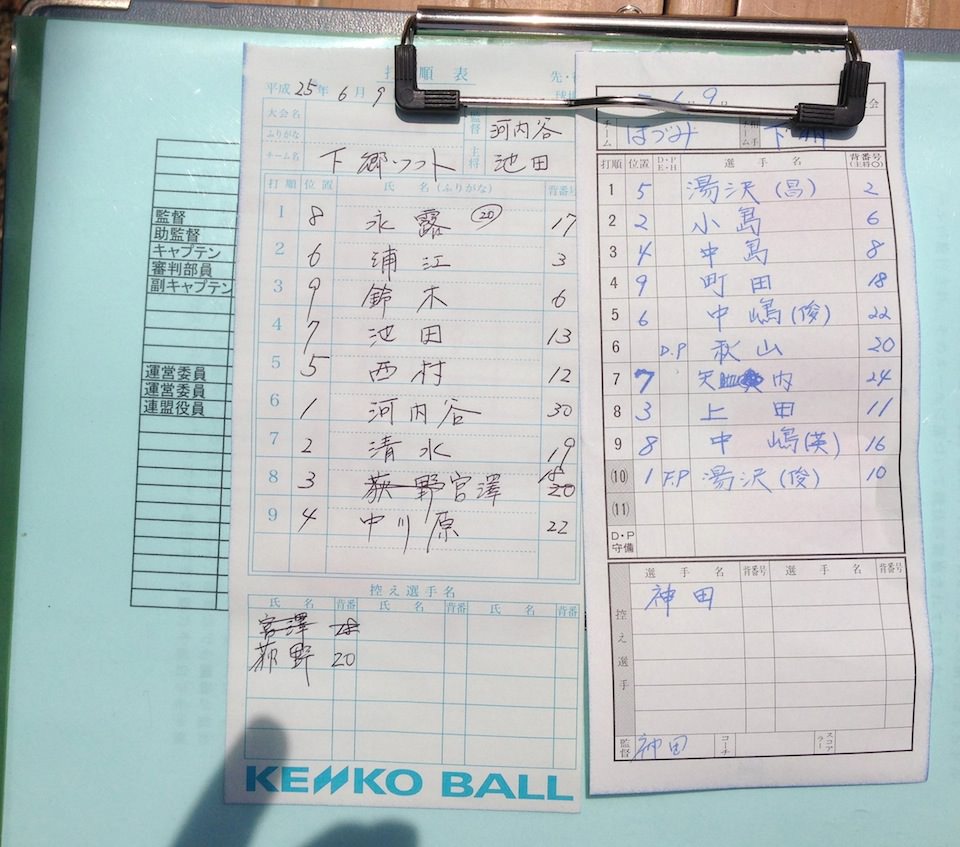 打順表
先・
平成25年6月9
球場
大会名
ふりがな
チーム名 下郷ソフト
監督 河内谷
主将 池田
打順 位置 氏名(ふりがな) 背番号
1 8 永露 (20) 17
2 6 浦江 3
3 9 鈴木 6
4 7 池田 13
5 5 西村 12
6 1 河内谷 30
7 2 清水 19
8 3 荻野宮澤 20
9 4 中川原 22
控え選手名
氏名 背番 氏名 背番 氏名 背番
宮澤
荻野 20
KENKO BALL
6 9
会
チーム はづみ 相手チーム
打順 位置 D・P E・H 選手名 背番号(主将○)
1 5 湯沢(昌) 2
2 2 小島 6
3 4 中島 8
4 9 町田 18
5 6 中嶋(俊) 22
6 D.P 秋山 20
7 7 矢内 24
8 3 上田 11
9 8 中嶋(英) 16
(10) 1 F.P 湯沢(俊) 10
(11)
D・P守備
控え選手
選手名 背番号 選手名 背番号
神田
監督 神田 コーチ スコアラー
監督
助監督
キャプテン
審判部員
副キャプテン
運営委員
運営委員
連盟役員